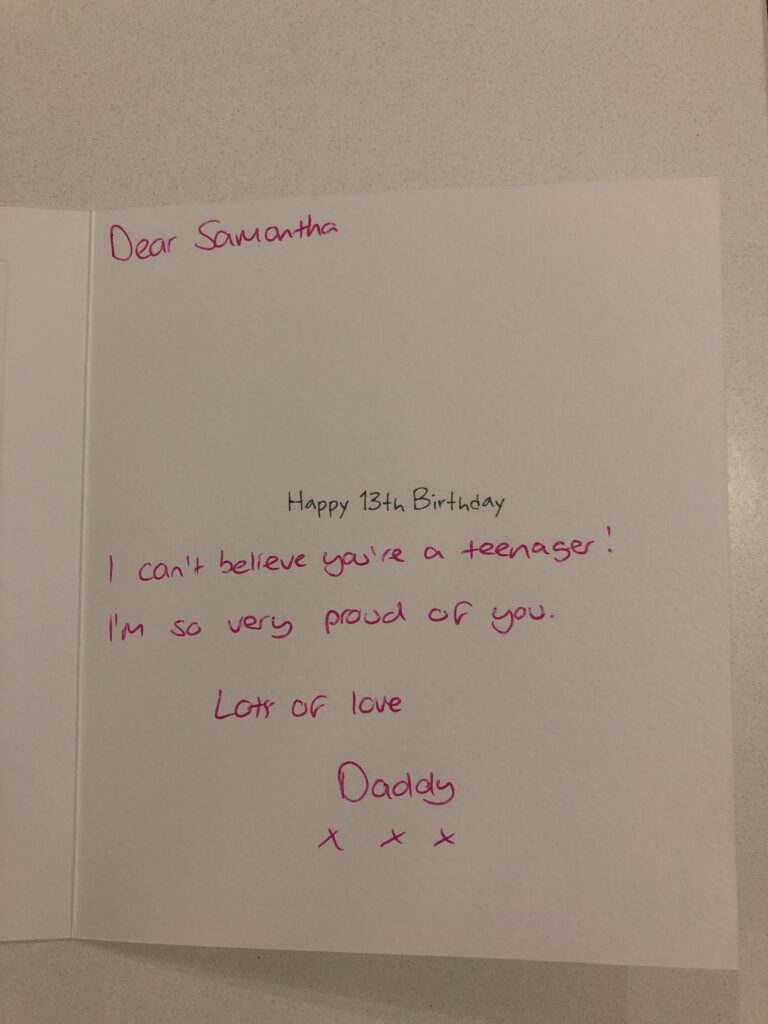 Dear Samantha
Happy 13th Birthday
I can't believe you're a teenager!
I'm so very proud of you.
Lots of love
Daddy
x x x